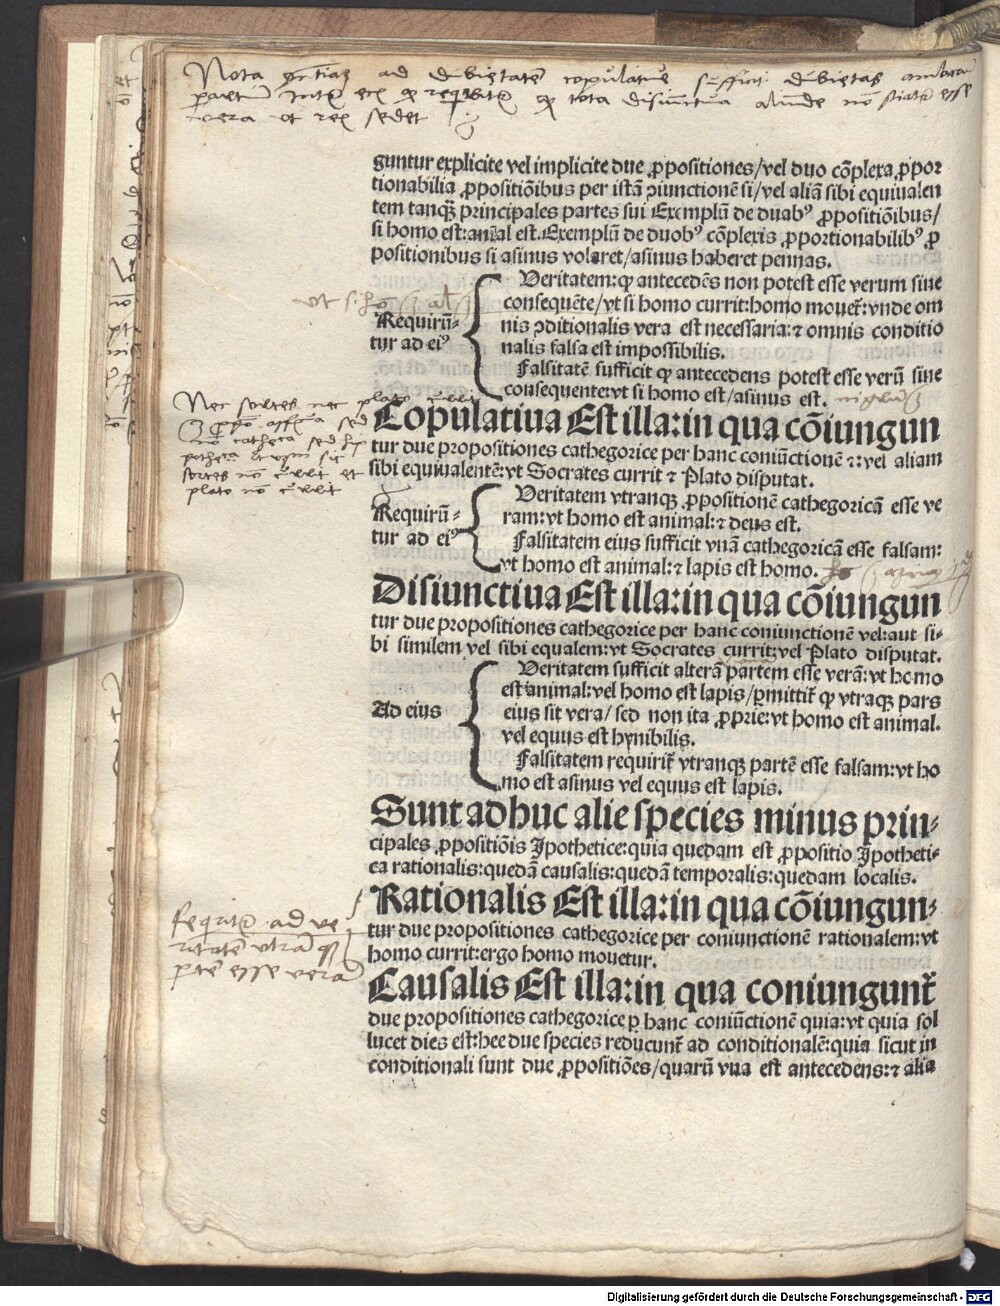 Nota ad dubietatem copulative sufficit dubietas
guntur explicite vel implicite due ꝓpositiones/vel duo cõplexa ꝓpor
tionabilia ꝓpositiõibus per istã ꝯiunctionẽ si/vel aliã sibi equiualen
tem tanqȝ principales partes sui Exemplũ de duabꝰ ꝓpositiõibus/
si homo est: aĩal est. Exemplũ de duobꝰ cõplexis ꝓportionabilibꝰ ꝓ
positionibus si asinus volaret/asinus haberet pennas.
Requirũ⸗
tur ad eiꝰ
Veritatem: ꝙ antecedẽs non potest esse verum sine
consequẽte/vt si homo currit: homo mouet᷑: vnde om
nis ꝯditionalis vera est necessaria: ⁊ omnis conditio
nalis falsa est impossibilis.
Falsitatẽ sufficit ꝙ antecedens potest esse verũ sine
consequente: vt si homo est/asinus est.
Nec sortes nec plato
Copulatiua Est illa: in qua cõiungun
tur due propositiones cathegorice per hanc coniũctionẽ ⁊: vel aliam
sibi equiualentẽ: vt Socrates currit ⁊ Plato disputat.
sortes non currit et
plato non currit
Requirũ⸗
tur ad eiꝰ
Veritatem vtranqȝ ꝓpositionẽ cathegoricã esse ve
ram: vt homo est animal: ⁊ deus est.
Falsitatem eius sufficit vnã cathegoricã esse falsam:
vt homo est animal: ⁊ lapis est homo.
Disiunctiua Est illa: in qua cõiungun
tur due propositiones cathegorice per hanc coniunctionẽ vel: aut si⸗
bi similem vel sibi equalem: vt Socrates currit: vel Plato disputat.
Ad eius
Veritatem sufficit alterã partem esse verã: vt homo
est animal: vel homo est lapis/ꝑmittit᷑ ꝙ vtraqȝ pars
eius sit vera/sed non ita ꝓprie: vt homo est animal.
vel equus est hynibilis.
Falsitatem requirit᷑ vtranqȝ partẽ esse falsam: vt ho
mo est asinus vel equus est lapis.
Sunt adhuc alie species minus prin⸗
cipales ꝓpositiõis Ipothetice: quia quedam est ꝓpositio Ipotheti⸗
ca rationalis: quedã causalis: quedã temporalis: quedam localis.
Rationalis Est illa: in qua cõiungun⸗
tur due propositiones cathegorice per coniunctionẽ rationalem: vt
homo currit: ergo homo mouetur.
Requiritur ad ve
ritatẽ vtrãqȝ
ptẽ esse verã
Causalis Est illa: in qua coniungunt᷑
due propositiones cathegorice ꝑ hanc coniũctionẽ quia: vt quia sol
lucet dies est: hee due species reducunt᷑ ad conditionalẽ: quia sicut in
conditionali sunt due ꝓpositiões/quarũ vna est antecedens: ⁊ alia
Digitalisierung gefördert durch die Deutsche Forschungsgemeinschaft - DFG